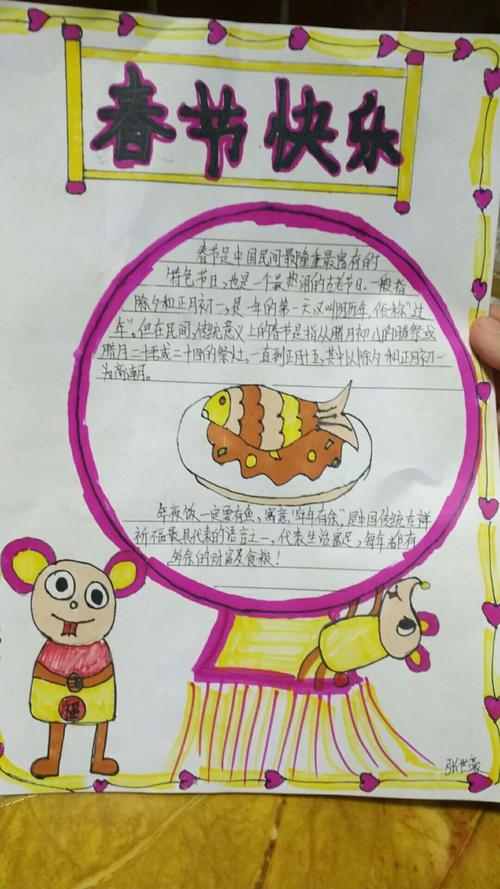 春节快乐
春节是中国民间最隆重最富有的
特色节日，也是一个最热闹的古老节日。一般指
除夕和正月初一，是一年的第一天，又叫阴历年，俗称"过
年"。但在民间，传统意义上的春节是指从腊月初八的腊祭或
腊月二十三或二十四的祭灶，一直到正月十五，其中以除夕和正月初一
为高潮。
年夜饭一定要有鱼，寓意"年年有余"，是中国传统吉祥
祈福最具代表的语言之一，代表生活富足，每年都有
多余的财富及食粮！
福
张世豪